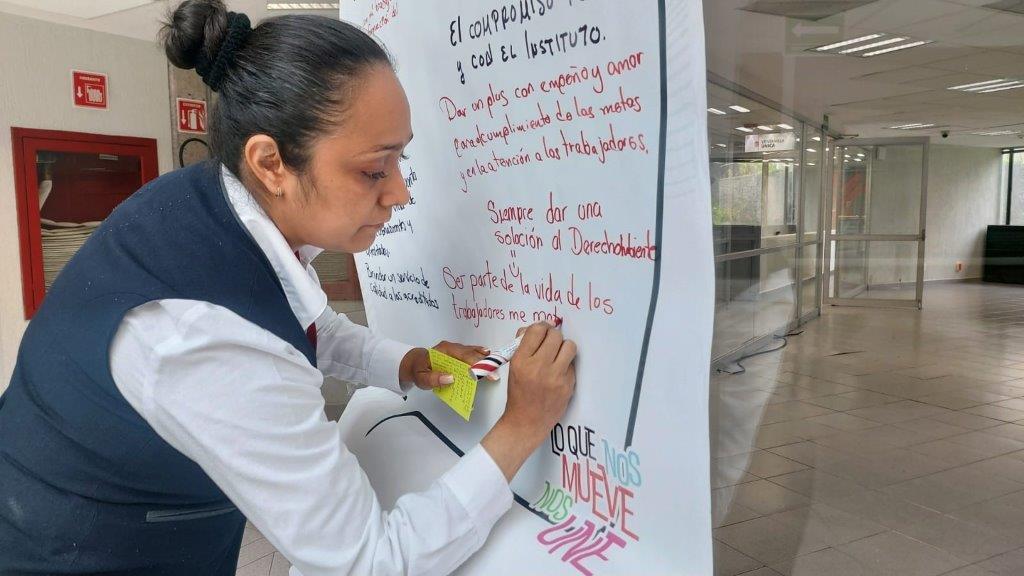 El compromiso
y con el Instituto.
Dar un plus con empeño y amor
para el cumplimiento de las metas
y en la atención a los trabajadores.
Siempre dar una
solución al Derechohabiente
Ser parte de la vida de los
trabajadores me mot
Brindar un servicio de
calidad a los acreditados
LO QUE NOS
MUEVE
NOS
UNE
VENTANILLA
ÚNICA
HIDRANTE